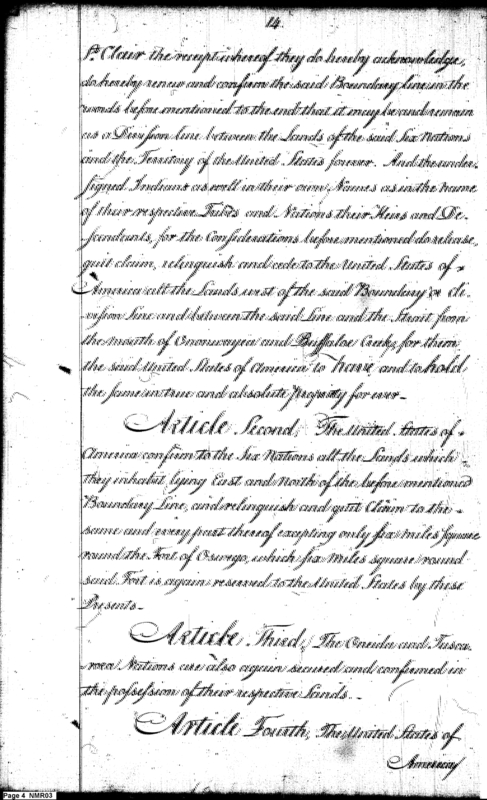 14
St. Clair the receipt whereof they do hereby acknowledge,
do hereby renew and confirm the said Boundary line in the
words before mentioned to the end that it may be and remain
as a Division line between the Lands of the said Six Nations
and the Territory of the United States forever. And the under-
signed Indians as well in their own Names as in the name
of their respective Tribes and Nations their Heirs and De-
scendants, for the Considerations before mentioned do release,
quit claim, relinquish and cede to the United States of
America all the Lands west of the said Boundary or di-
vision Line and between the said Line and the Strait from
the mouth of Ononwayea and Buffaloe Creek, for them
the said United States of America to have and to hold
the same in true and absolute propriety for ever -
Article Second, The United States of
America confirm to the Six Nations all the Lands which
they inhabit lying East and North of the before mentioned
Boundary Line, and relinquish and quit Claim to the
same and every part thereof excepting only six miles square
round the Fort of Oswego, which six miles square round
said Fort is again reserved to the United States by these
Presents -
Article Third, The Oneida and Tusca-
rora Nations are also again secured and confirmed in
the possession of their respective Lands. -
Article Fourth, The United States of
America
Page 4 NMR03